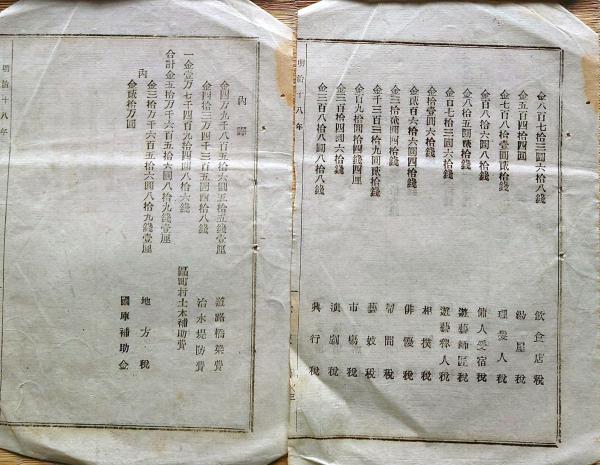 金八百七拾三圓六拾八錢 飲食店税
金五百四拾四圓 湯屋税
金七百八拾壹圓貳拾錢 理髪人税
金百八拾六圓八拾錢 傭人受宿税
金八拾五圓貳拾錢 遊藝師匠税
金百七拾三圓六拾錢 遊藝稼人税
金拾壹圓六拾錢 相撲税
金貳百六拾六圓四拾錢 俳優税
金三拾貳圓四拾錢 幇間税
金千三百三拾九圓貳拾錢 藝妓税
金百九拾圓拾四錢四厘 市場税
金三百拾四圓六拾錢 演劇税
金三百八拾八圓八拾八錢 興行税
明治十八年
内譯
金四万九千八百五拾六圓五拾五錢壹厘 道路橋梁費
金四拾三万四千三百五圓四拾八錢 治水堤防費
一金壹万七千四百九拾四圓八拾六錢 區町村土木補助費
合計金五拾万千六百五拾六圓八拾九錢壹厘
内
金三拾万千六百五拾六圓八拾九錢壹厘 地方税
金貳拾万圓 國庫補助金
明治十八年